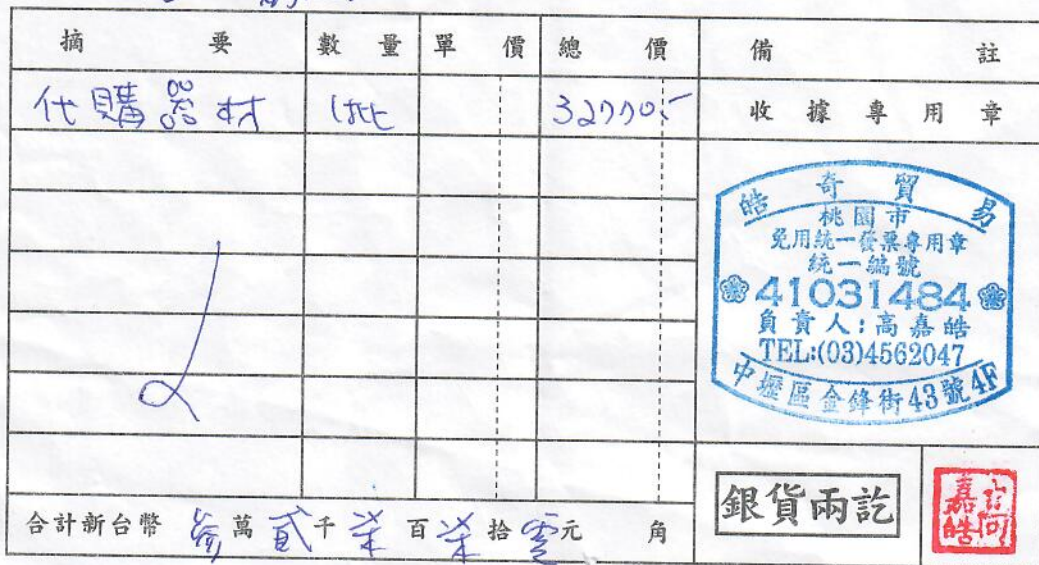 摘要 數量 單價 總價 備註
代購器材 1批 32770.- 收據專用章
皓奇貿易
桃園市
免用統一發票專用章
統一編號
41031484
負責人:高嘉皓
TEL:(03)4562047
中壢區金鋒街43號4F
合計新台幣 參萬貳千柒百柒拾零元 角
銀貨兩訖
高嘉皓